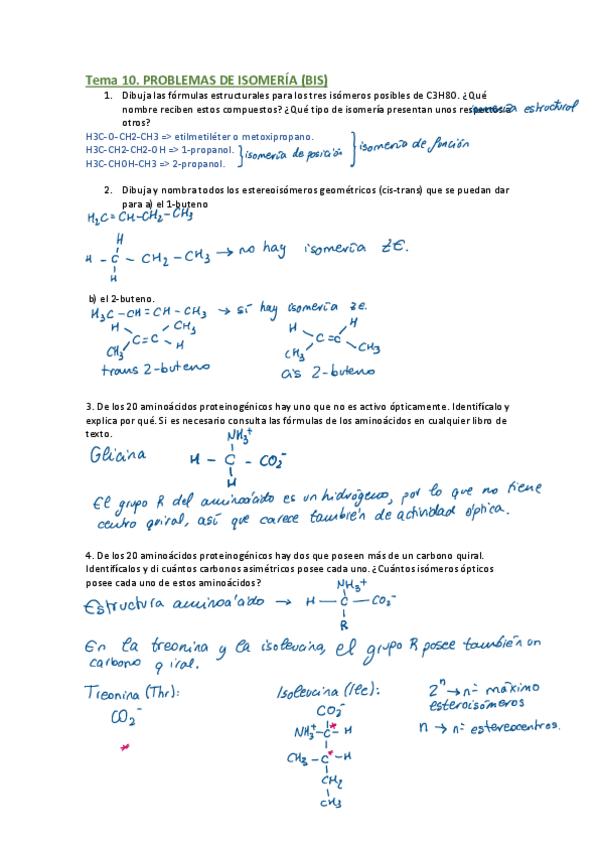 Tema 10. PROBLEMAS DE ISOMERÍA (BIS)
1. Dibuja las fórmulas estructurales para los tres isómeros posibles de C3H8O. ¿Qué
nombre reciben estos compuestos? ¿Qué tipo de isomería presentan unos respecto a isomería estructural
otros?
H3C-O-CH2-CH3 => etilmetiléter o metoxipropano.
H3C-CH2-CH2-OH => 1-propanol. isomería de posición isomería de función
H3C-CHOH-CH3 => 2-propanol.
2. Dibuja y nombra todos los estereoisómeros geométricos (cis-trans) que se puedan dar
para a) el 1-buteno
H2C=CH-CH2-CH3
H
H - C - CH2 - CH3 → no hay isomería ZE.
H
b) el 2-buteno.
H3C - CH = CH - CH3 → sí hay isomería ZE.
H CH3 H H
C=C C=C
CH3 H CH3 CH3
trans 2-buteno cis 2-buteno
3. De los 20 aminoácidos proteinogénicos hay uno que no es activo ópticamente. Identifícalo y
explica por qué. Si es necesario consulta las fórmulas de los aminoácidos en cualquier libro de
texto.
NH3+
Glicina H - C - CO2-
H
El grupo R del aminoácido es un hidrógeno, por lo que no tiene
centro quiral, así que carece también de actividad óptica.
4. De los 20 aminoácidos proteinogénicos hay dos que poseen más de un carbono quiral.
Identifícalos y di cuántos carbonos asimétricos posee cada uno. ¿Cuántos isómeros ópticos
posee cada uno de estos aminoácidos?
NH3+
Estructura aminoácido → H - C - CO2-
R
En la treonina y la isoleucina, el grupo R posee también un
carbono quiral.
Treonina (Thr): Isoleucina (Ile): 2^n → nº máximo
CO2- CO2- esteroisómeros
* NH3+ - C* - H n → nº estereocentros.
CH3 - C* - H
CH2
CH3